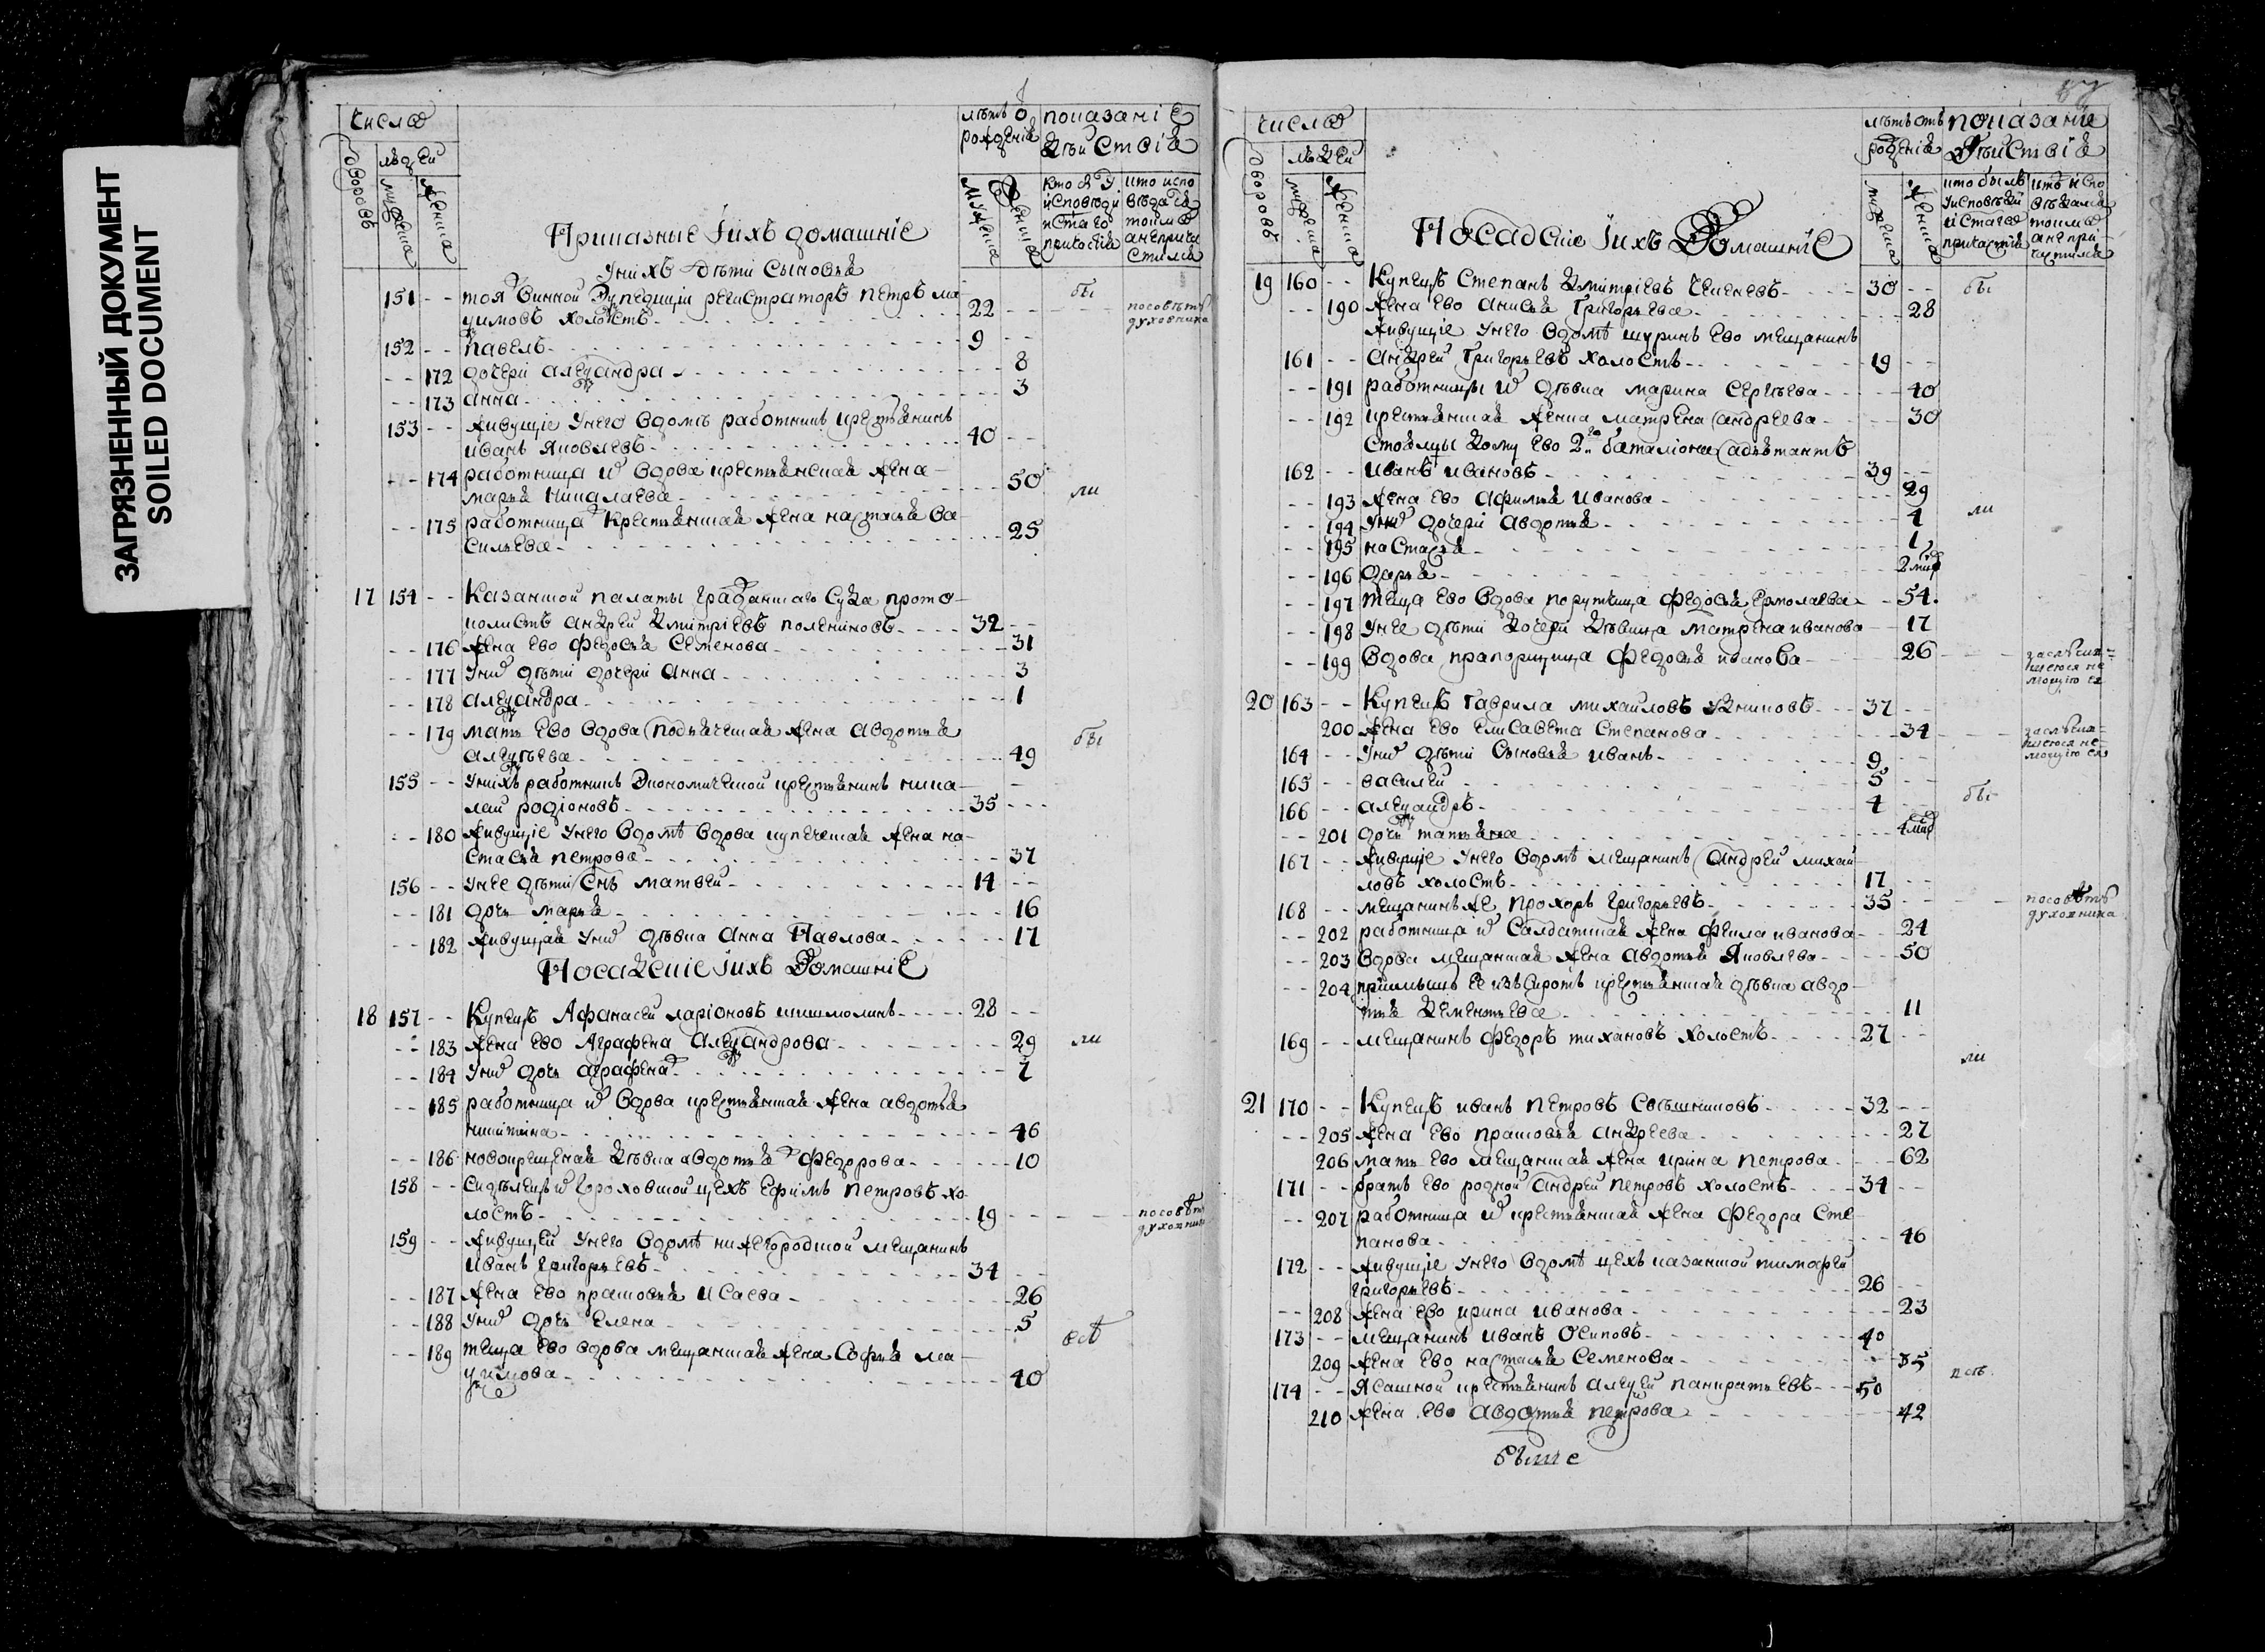 ЗАГРЯЗНЕННЫЙ ДОКУМЕНТ
SOILED DOCUMENT
число
лѣтъ о показаніе
рожденія дѣйствія
дворовъ
людей
мужеска
женска
мужеска
женска
кто и у что испо
исповѣди вѣдался
и стаго токмо
причастія а не прича
стился
Приказные і ихъ домашніе
у нихъ дѣти сыновья
151 - - тоя винной экпедиціи регистраторъ петръ ма
ҟимовъ холостъ 22 по совѣту
духовника
бы
152 - - павелъ 9
- - 172 дочери алеѯандра 8
- - 173 анна 3
153 - - живущіе у него в домѣ работникъ крестьянинъ
иванъ яковлевъ 40
- - 174 работница ѿ вдова крестьянская жена
марья николаева 50
ли
- - 175 работница крестьянская жена настасья ва
сильева 25
17 154 - - Казанской палаты гражданскаго суда прото
колистъ андрей дмитріевъ полениновъ 32
- - 176 жена ево федосья семенова 31
- - 177 у них дѣти дочери анна 3
- - 178 алеѯандра 1
- - 179 мать ево вдова подьяческая жена авдотья
алеѯѣева 49
бы
155 - - у нихъ работникъ экономической крестьянинъ нико
лай родіоновъ 35
- - 180 живущіе у него в домѣ вдова купеческая жена на
стасья петрова 37
156 - - у нее дѣти снъ матвей 14
- - 181 дочь марья 16
- - 182 живущая у них дѣвка анна Павлова 17
Посадскіе і ихъ домашніе
18 157 - - Купецъ Афанасей ларіоновъ шишмолинъ 28
- - 183 жена ево Аграфена Алеѯандрова 29
ли
- - 184 у них дочь аграфена 7
- - 185 работница ѿ вдова крестьянская жена авдотья
никитина 46
- - 186 новокрещеная дѣвка авдотья федорова 10
158 - - сидѣлецъ ѿ гороховской цехъ ефимъ петровъ хо
лостъ 19 по совѣту
духовника
159 - - живущей у него в домѣ нижегородской мещанинъ
иванъ григорьевъ 34
- - 187 жена ево прасковья исаева 26
- - 188 у них дочь елена 5
- - 189 теща ево вдова мещанская жена софья ма
ѯимова 40
число
лѣтъ отъ показаніе
рожденія дѣйствія
дворовъ
людей
мужеска
женска
мужеска
женска
кто былъ кто испо
у исповѣди вѣдался
и стаго токмо
причастія а не при
частился
Посадскіе і ихъ Домашніе
19 160 - - Купецъ Степанъ дмитріевъ чекеневъ 30
бы
- - 190 жена ево анисья григорьева 28
живущіе у него в домѣ шуринъ ево мещанинъ
161 - - андрей григорьевъ холостъ 19
- - 191 работницы ѿ дѣвка марина сергѣева 40
- - 192 крестьянская жена матрена андреева 30
стояльцы дому ево 2го баталіона адъютантъ
162 - - иванъ ивановъ 39
- - 193 жена ево афимья иванова 29
ли
- - 194 у них дочери авдотья 4
- - 195 настасья 1
- - 196 дарья 2 мцъ
- - 197 теща ево вдова порутчица федосья ермолаева 54
- - 198 у нее дѣти дочери дѣвица матрена иванова 17
- - 199 вдова прапорщица федосья иванова 26
20 163 - - Купецъ гаврила михайловъ 37
200 жена ево елисавета степанова 34
164 - - у них дѣти сыновья иванъ 9
165 - - василей 5
166 - - алеѯандръ 4
бы
- - 201 дочь татьяна 4 мцъ
167 - - живущіе у него в домѣ мещанинъ андрей михай
ловъ холостъ 17
168 - - мещанинъ же прохоръ григорьевъ 35 по совѣту
духовника
- - 202 работница ѿ салдатская жена фекла иванова 24
- - 203 вдова мещанская жена авдотья яковлева 50
- - 204 приемышъ ее изъ сиротъ крестьянская дѣвка авдо
тья дементьева 11
169 - - мещанинъ федоръ тихановъ холостъ 27
ли
21 170 - - Купецъ иванъ петровъ свѣшниковъ 32
- - 205 жена ево прасковья андреева 27
206 мать ево мещанская жена ирина петрова 62
171 - - братъ ево родной андрей петровъ холостъ 34
- - 207 работница ѿ крестьянская жена федора сте
панова 46
172 - - живущіе у него в домѣ цехъ казанской тимофей
григорьевъ 26
- - 208 жена ево ирина иванова 23
173 - - мещанинъ иванъ осиповъ 40
209 жена ево настасья семенова 35
174 - - ясашной крестьянинъ алеѯѣй панкратьевъ 50
210 жена ево авдотья петрова 42